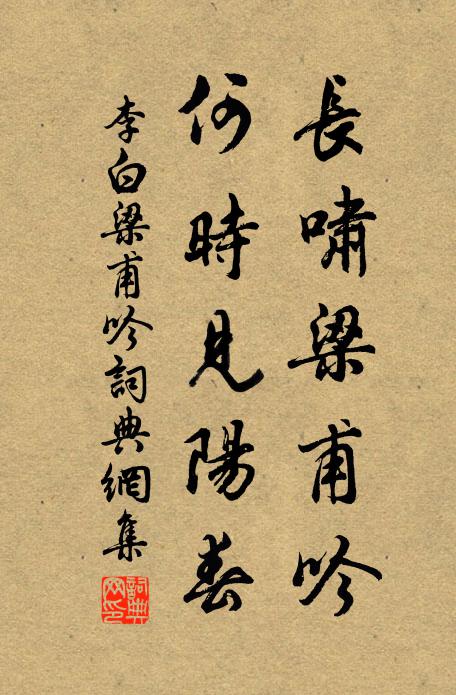 長嘯梁甫吟
何時見陽春
李白梁甫吟詞典網集
詞典
网印